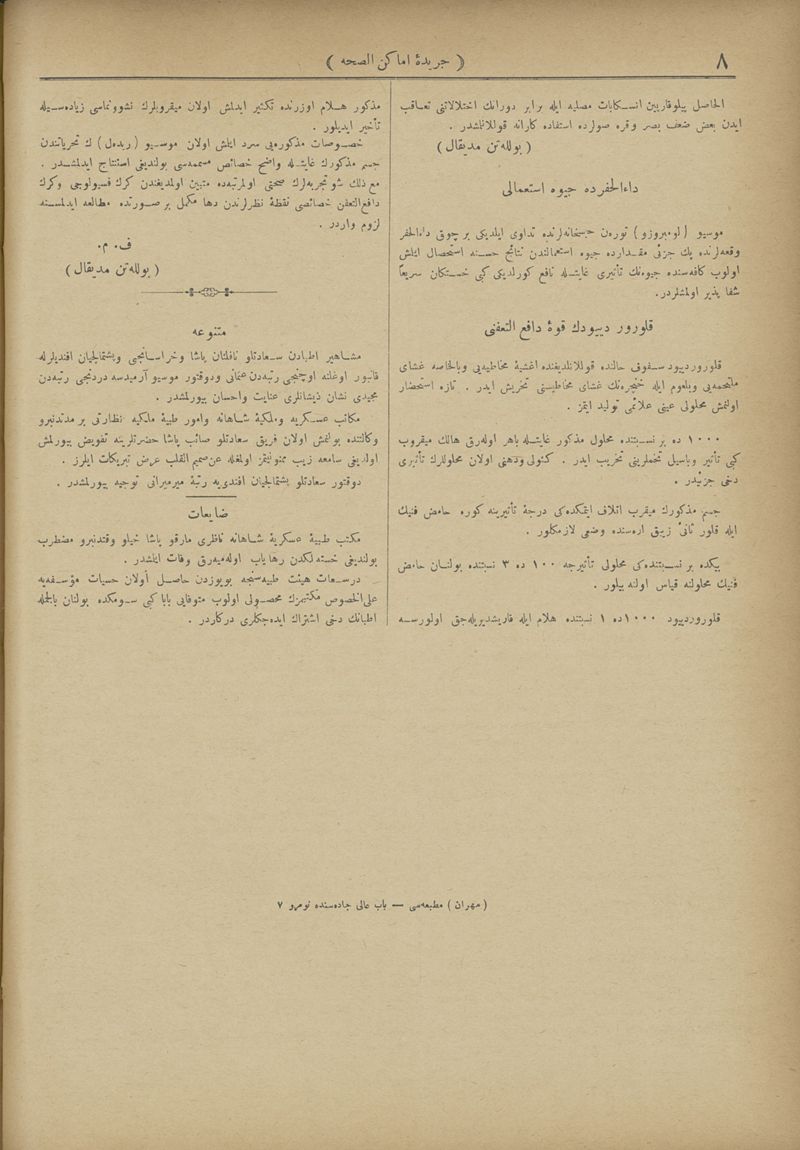 ٨
( جریدۀ اماكن الصحه )
الحاصل پیلوقارپین انسكابات مصلیه ایله برابر دورانك اختلالاتنی تعاقب
ایدن بعض ضعف بصر وقره صولرده استفاده كارانه قوللانلشدر .
( بولله‌تن مدیقال )
داءالحفرده جیوه استعمالی
موسیو ( لومبروزو ) تورەن خسته‌خانه‌لرنده تداوی ایلدیكی بر چوق داءالحفر
وقعه‌لرنده پك جزئی مقدارده جیوه استعمالندن نتائج حسنه استحصال ایلمش
اولوب كافه‌سنده جیوه‌نك تأثیری غایتله نافع كورلدیكی كبی خستكان سریعاً
شفا پذیر اولمشلردر.
قلورور دییودك قوۀ دافع التعفنی
قلوروردییود سفوفی حالنده قوللانلدیغنده اغشیۀ مخاطیه‌یی وبالخاصه غشای
ملتحمه‌یی وبلعوم ایله خنجره‌نك غشای مخاطیسنی تخریش ایدر . تازه استحضار
اولنمش محلولی عینی علائمی تولید ایتمز .
١٠٠٠ ده بر نسبتنده محلول مذكور غایتله باهر اوله‌رق هالك میقروب
كبی تأثیر وباسیلی تخملرینی تخریب ایدر . كئولی ودهنی اولان محلوللرك تأثیری
دخی جزئیدر .
جسم مذكورك میقرب اتلاف ایتمكده‌كی درجۀ تأثیرینه كوره حامض فنیك
ایله قلور ثانیٔ زیبق ارەسنده وضعی لازمكلور .
بیكده بر نسبتنده‌كی محلولی تأثیرجه ١٠٠ ده ٣ نسبتنده بولنان حامض
فنیك محلولنه قیاس اولنه بیلور .
قلوروردییود ١٠٠٠ده ١ نسبتنده هلام ایله قاریشدیریله‌جق اولورسه
مذكور هلام اوزرنده تكثیر ایدلمش اولان میقروبلرك نشوونماسی زیاده‌سیله
تأخیر ایدیلور .
خصوصات مذكوره‌یی سرد ایلمش اولان موسیو ( ریدەل ) ك تحریاتندن
جسم مذكورك غایتله واضح خصائص مسممه‌سی بولندیغی استنتاج ایدلمشدر .
مع ذلك شو تجربه‌لرك صحتی اولمرتبه‌ده متبین اولمدیغندن كرك فسیولوجی وكرك
دافع‌التعفن خصائصی نقطۀ نظرلرندن دها مكمل بر صورتده مطالعه ایدلمسنه
لزوم واردر .
ف . م .
( بولله‌تن مدیقال )
متنوعه
مشاهیر اطبادن سعادتلو نافلتان پاشا وخراسانجی وپشتمالجیان افندیلرله
قانبور اوغلنه اوچنجی رتبه‌دن عثمانی ودوقتور موسیو آرمیدسه دردنجی رتبه‌دن
مجیدی نشان ذیشانلری عنایت واحسان بیورلمشدر .
مكاتب عسكریه وملكیۀ شاهانه وامور طبیۀ ملكیه نظارتی بر مدتدنبرو
وكالتنده بولنمش اولان فریق سعادتلو صائب پاشا حضرتلرینه تفویض بیورلمش
اولدیغی سامعه زیب ممنونیتمز اولمغله عن‌صمیم القلب عرض تبریكات ایلرز .
دوقتور سعادتلو پشتمالجیان افندی‌یه رتبۀ میرمیرانی توجیه بیورلمشدر .
ضایعات
مكتب طبیۀ عسكریۀ شاهانه ناظری مارقو پاشا خیلو وقتدنبرو مضطرب
بولندیغی خسته‌لكدن رهایاب اوله‌میه‌رق وفات ایلمشدر .
درسعادت هیئت طبیه‌سنجه بویوزدن حاصل أولان حسیات مؤسفه‌یه
علی‌الخصوص مكتبمزك محصولی اولوب متوفایی بابا كبی سومكده بولنان بالجمله
اطبانك دخی اشتراك ایده‌جكلری دركاردر .
( مهران ) مطبعه‌سی — باب عالی جاده‌سنده نومرو ٧